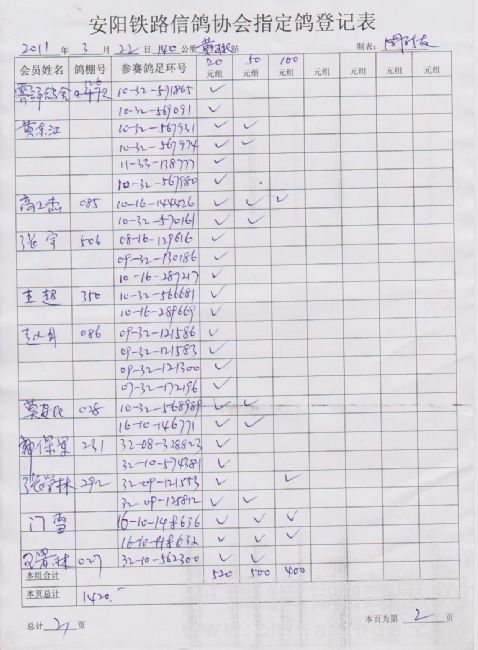 安阳铁路信鸽协会指定鸽登记表
2011 年 3 月 22 日 140 公里 站 制表：
20 50 100
会员姓名 鸽棚号 参赛鸽足环号 元组 元组 元组 元组 元组 元组 元组
10-32-571865 ✓
10-32-569091 ✓
黄京江 10-32-567931 ✓ ✓
10-32-567974 ✓ ✓
11-33-138777 ✓
10-32-567980 ✓
085 10-16-144426 ✓ ✓ ✓
10-32-570161 ✓ ✓
张宇 506 08-16-129616 ✓
09-32-130186 ✓
10-16-287217 ✓
350 10-32-566681 ✓
10-16-289669 ✓
086 09-32-121586 ✓
09-32-121583 ✓
09-32-121300 ✓
07-32-172196 ✓
028 10-32-568989 ✓ ✓
16-10-146771 ✓ ✓
231 32-08-328823 ✓
32-10-574381 ✓
张学林 292 32-09-121553 ✓ ✓
32-09-125812 ✓ ✓
门雪 16-10-148636 ✓ ✓ ✓
16-10-148632 ✓ ✓ ✓
027 32-10-562300 ✓ ✓
本组合计 520 500 400
本页总计 1420.-
总计 2 页 本页为第 2 页